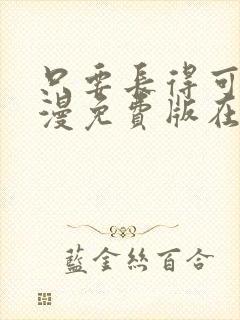 只要長得可
漫免費版在
藍金絲百合